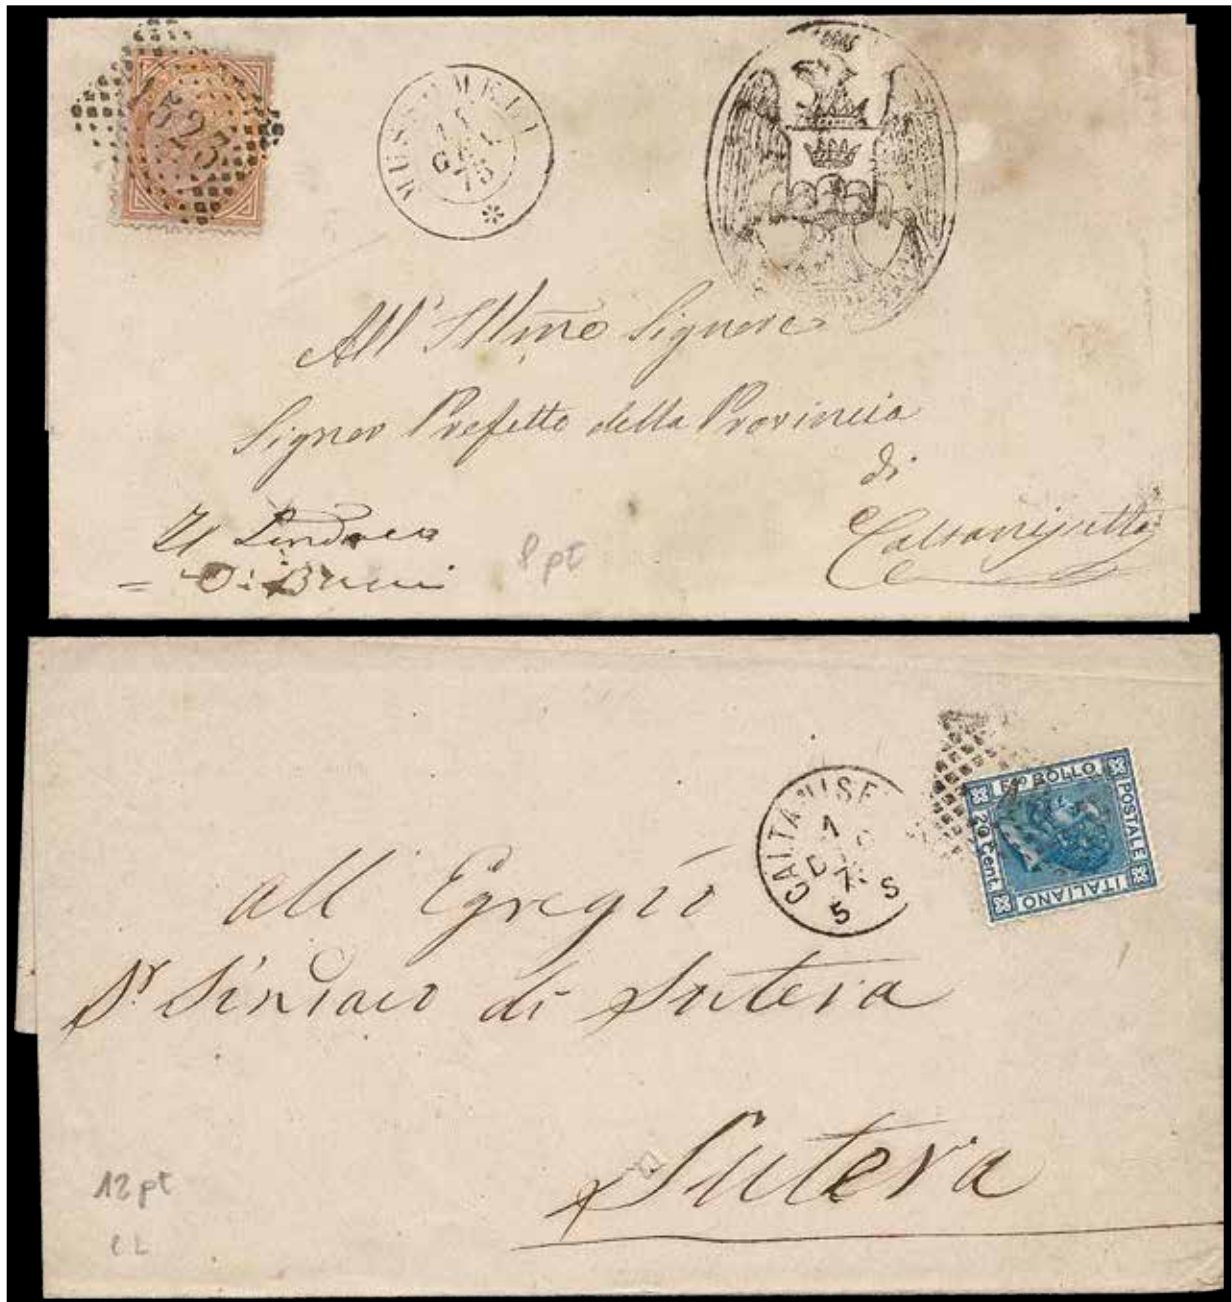 MUSSOMELI
GEN
75
All' Illmo Signore
Signor Prefetto della Provincia
di
Caltanisetta
Il Sindaco
8 pt
CALTANISE
1
DIC
7
5 S
Fco BOLLO
POSTALE
ITALIANO
20 Cent.
all Egregio
Sr Sindaco di Sutera
Sutera
12 pt